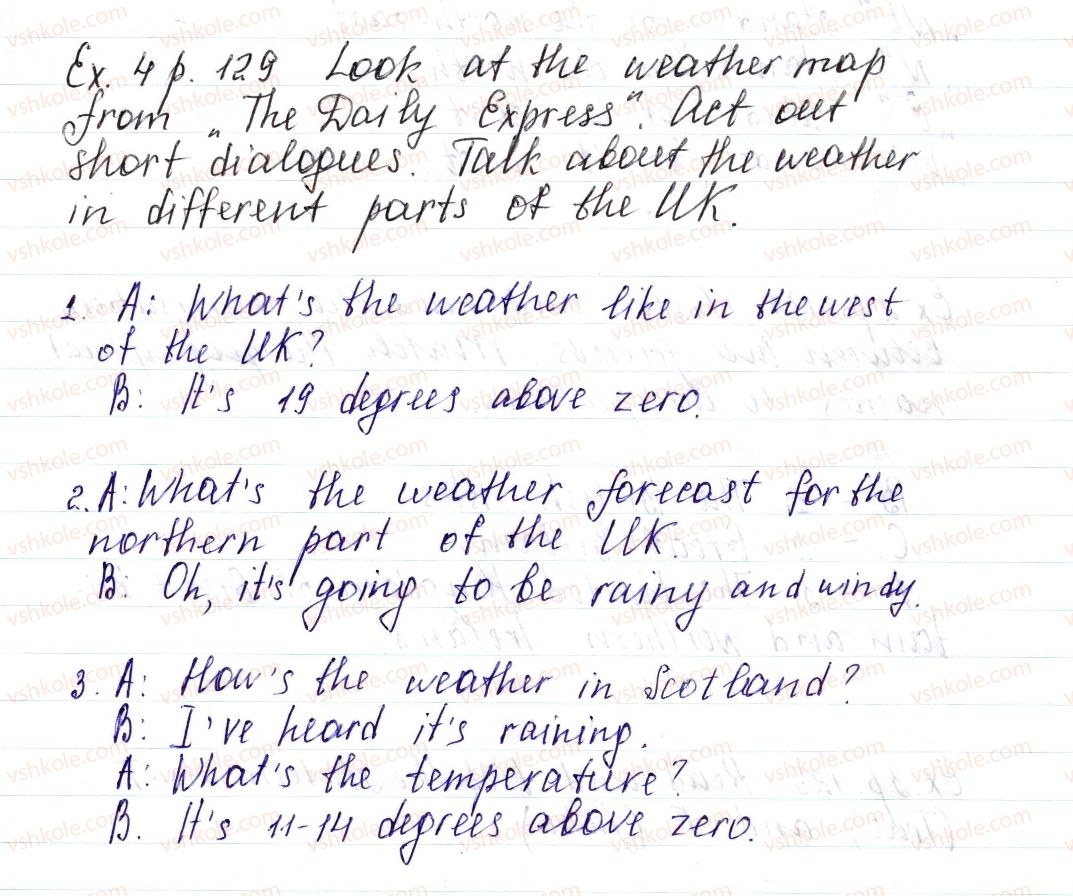 Ex. 4 p. 129 Look at the weather map
from „The Daily Express". Act out
short dialogues. Talk about the weather
in different parts of the UK.
1. A: What's the weather like in the west
of the UK?
B: It's 19 degrees above zero.
2. A: What's the weather forecast for the
northern part of the UK.
B: Oh, it's going to be rainy and windy.
3. A: How's the weather in Scotland?
B: I've heard it's raining.
A: What's the temperature?
B. It's 11-14 degrees above zero.